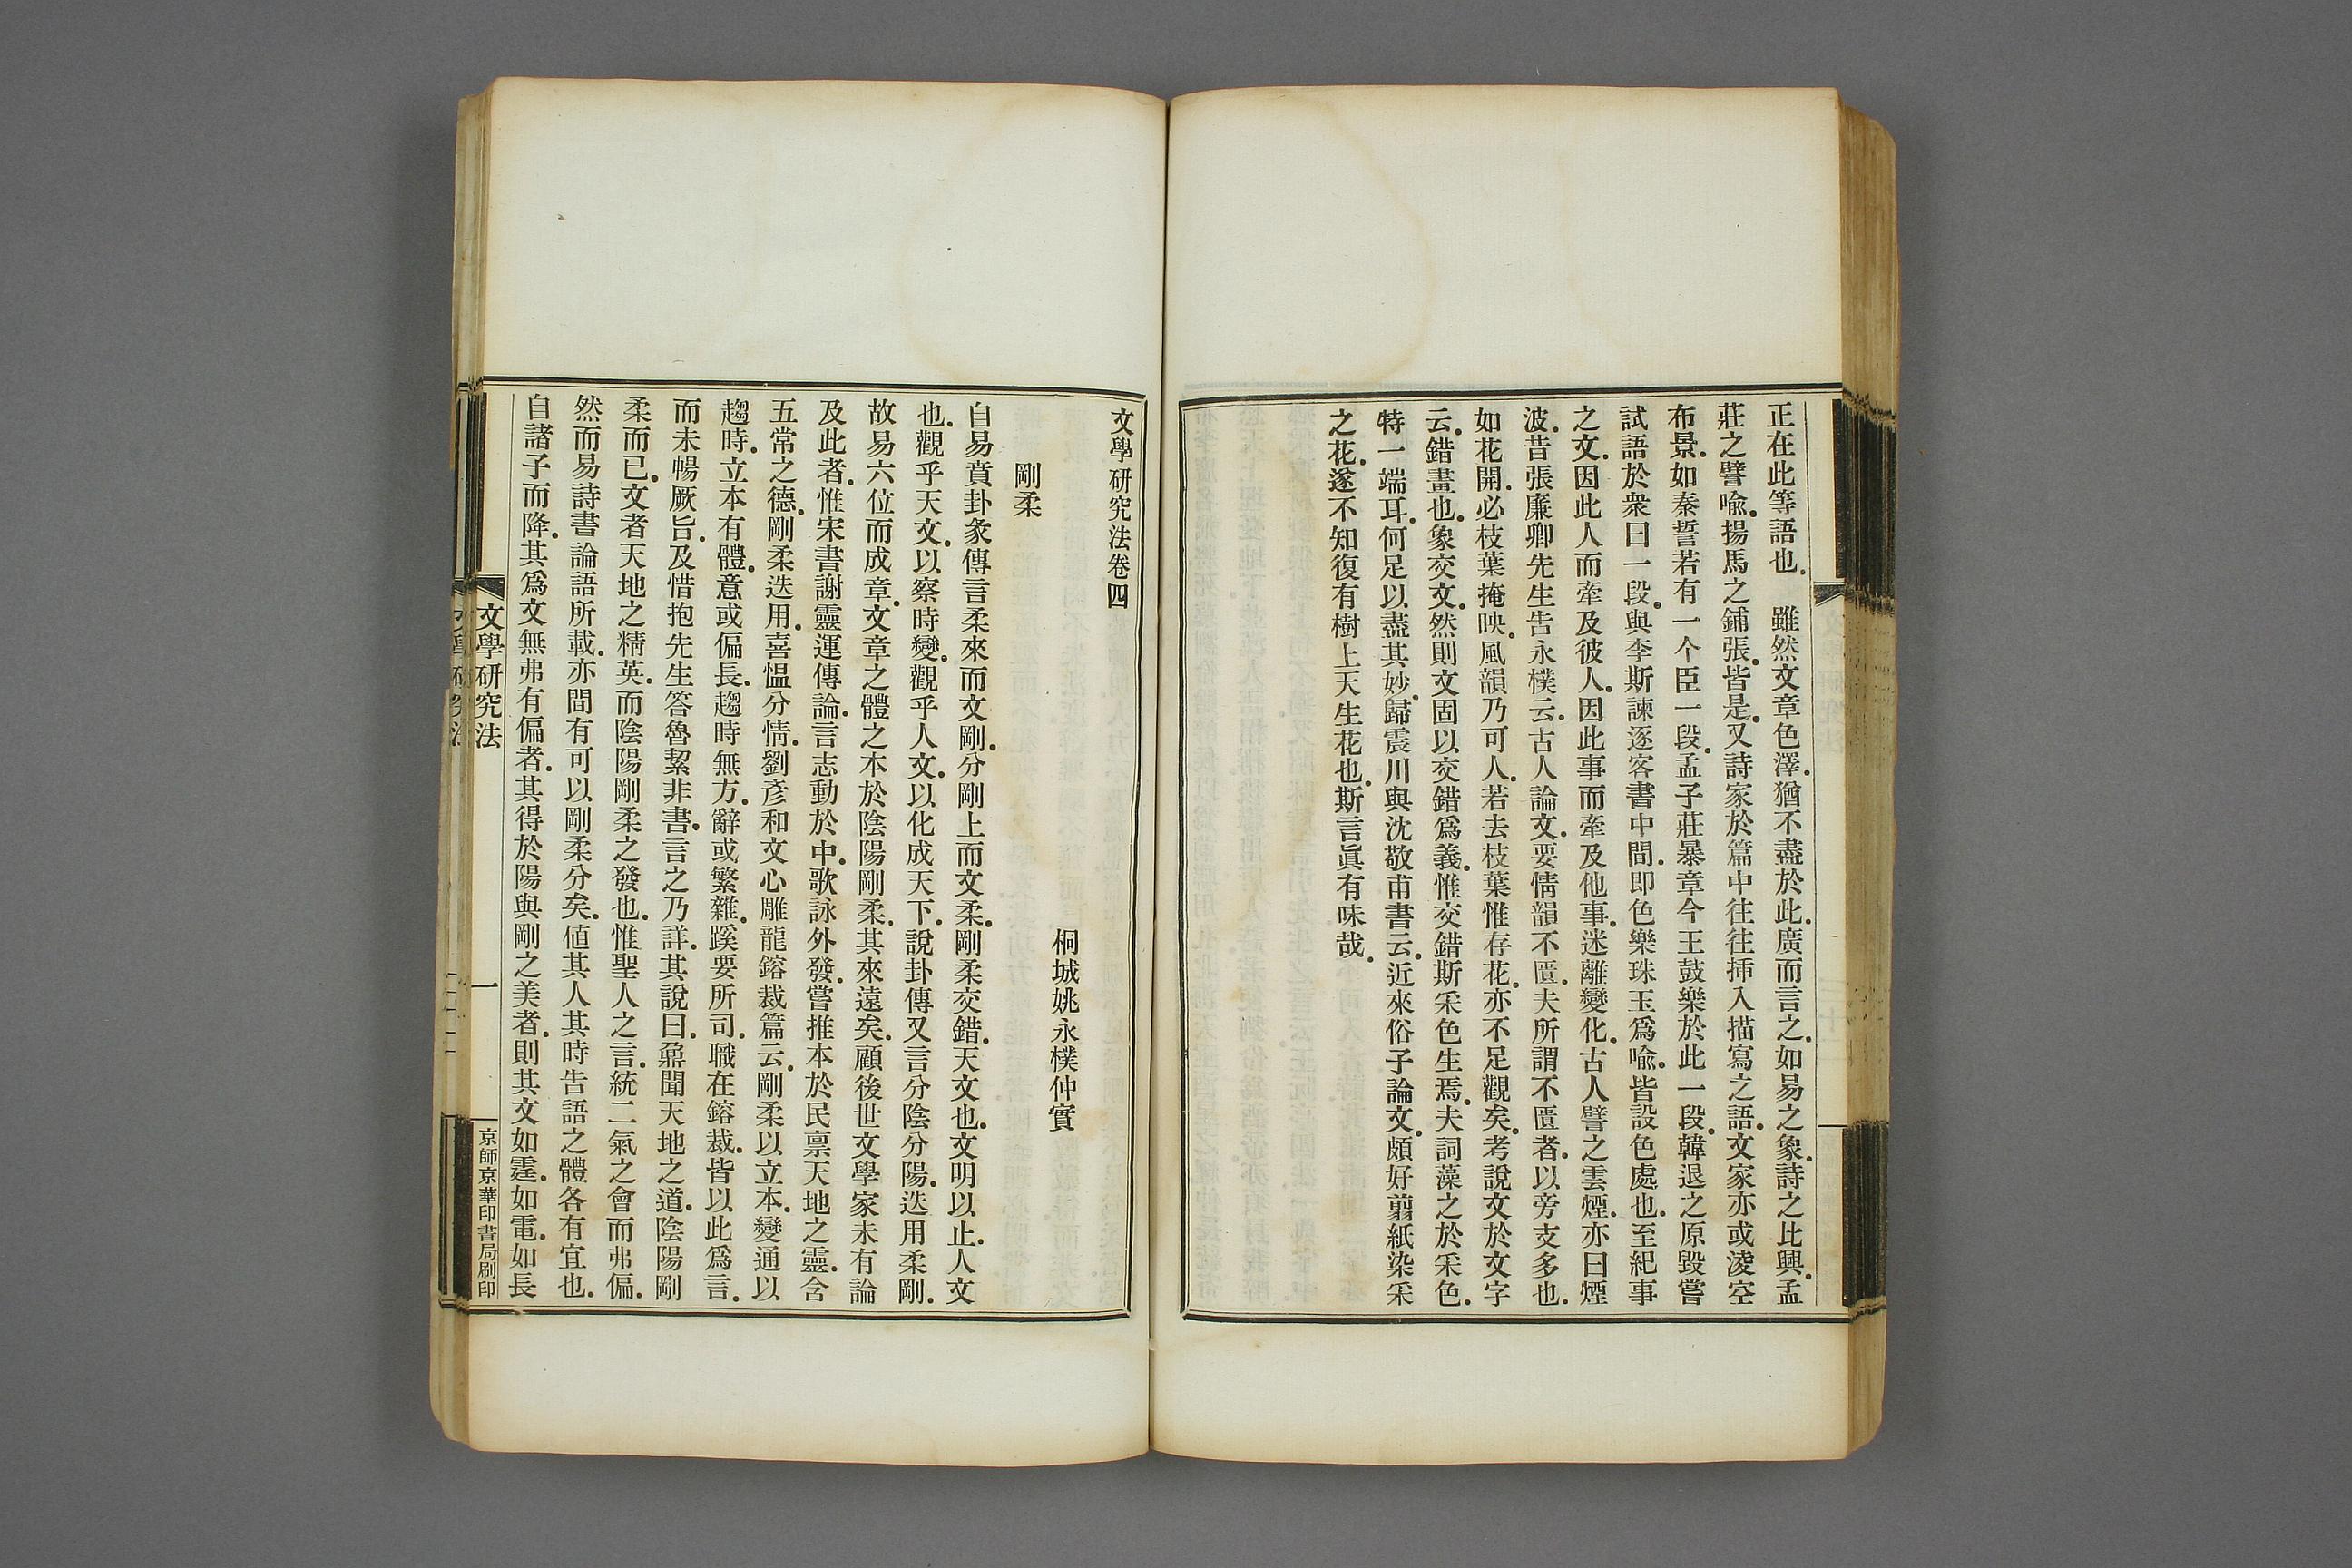 正在此等語也.　雖然文章色澤.猶不盡於此.廣而言之.如易之象.詩之比興.孟
莊之譬喩.揚馬之鋪張.皆是.又詩家於篇中往往揷入描寫之語.文家亦或淩空
布景.如秦誓若有一个臣一段.孟子莊暴章今王鼓樂於此一段.韓退之原毀嘗
試語於衆曰一段.與李斯諫逐客書中間.即色樂珠玉爲喩.皆設色處也.至紀事
之文.因此人而牽及彼人.因此事而牽及他事.迷離變化.古人譬之雲煙.亦曰煙
波.昔張廉卿先生吿永樸云.古人論文.要情韻不匱.夫所謂不匱者.以旁支多也.
如花開.必枝葉掩映.風韻乃可人.若去枝葉惟存花.亦不足觀矣.考說文於文字
云.錯畫也.象交文.然則文固以交錯爲義.惟交錯斯采色生焉.夫詞藻之於采色.
特一端耳.何足以盡其妙.歸震川與沈敬甫書云.近來俗子論文.頗好翦紙染采
之花.遂不知復有樹上天生花也.斯言眞有味哉.
文學研究法卷四
桐城姚永樸仲實
剛柔
自易賁卦彖傳言柔來而文剛.分剛上而文柔.剛柔交錯.天文也.文明以止.人文
也.觀乎天文.以察時變.觀乎人文.以化成天下.說卦傳又言分陰分陽.迭用柔剛.
故易六位而成章.文章之體之本於陰陽剛柔.其來遠矣.顧後世文學家未有論
及此者.惟宋書謝靈運傳論.言志動於中.歌詠外發.嘗推本於民禀天地之靈.含
五常之德.剛柔迭用.喜慍分情.劉彥和文心雕龍鎔裁篇云.剛柔以立本.變通以
趨時.立本有體.意或偏長.趨時無方.辭或繁雜.蹊要所司.職在鎔裁.皆以此爲言.
而未暢厥旨.及惜抱先生答魯絜非書.言之乃詳.其說曰.鼐聞天地之道.陰陽剛
柔而已.文者天地之精英.而陰陽剛柔之發也.惟聖人之言.統二氣之會而弗偏.
然而易詩書論語所載.亦間有可以剛柔分矣.値其人其時吿語之體各有宜也.
自諸子而降.其爲文無弗有偏者.其得於陽與剛之美者.則其文如霆.如電.如長
文學研究法
一
京師京華印書局刷印